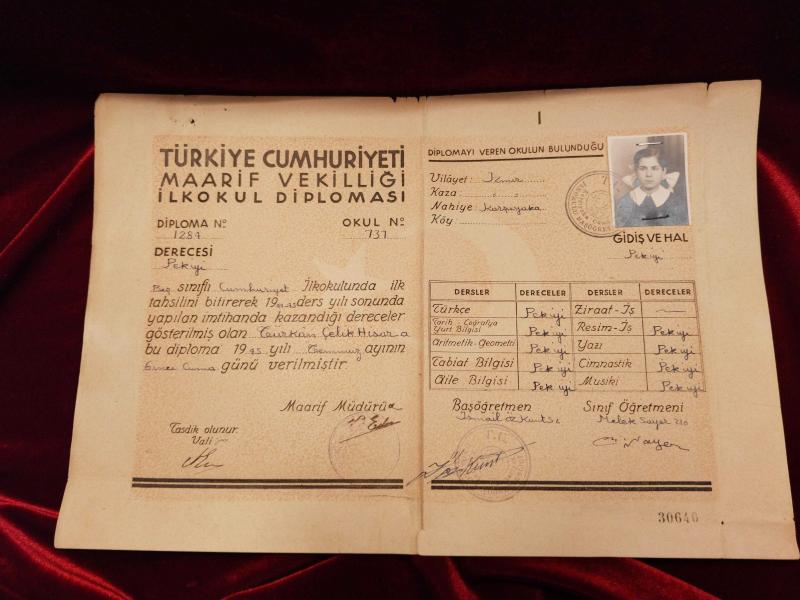 TÜRKİYE CUMHURİYETİ
MAARİF VEKİLLİĞİ
İLKOKUL DİPLOMASI
DİPLOMA Nº
1284
OKUL Nº
737
DERECESİ
Pekiyi
Beş sınıflı Cumhuriyet İlkokulunda ilk
tahsilini bitirerek 19 ders yılı sonunda
yapılan imtihanda kazandığı dereceler
gösterilmiş olan Türkân Çelik Hisar a
bu diploma 1945 yılı Temmuz ayının
Cuma günü verilmiştir.
Maarif Müdürü
Tasdik olunur.
Vali
DİPLOMAYI VEREN OKULUN BULUNDUĞU
Vilâyet: İzmir
Kaza:
Nahiye: Karşıyaka
Köy:
GİDİŞ VE HAL
Pekiyi
DERSLER DERECELER DERSLER DERECELER
Türkçe Pekiyi Ziraat-İş
Tarih-Coğrafya Yurt Bilgisi Pekiyi Resim-İş Pekiyi
Aritmetik-Geometri Pekiyi Yazı Pekiyi
Tabiat Bilgisi Pekiyi Cimnastik Pekiyi
Aile Bilgisi Pekiyi Musiki Pekiyi
Başöğretmen
İsmail Özkurt
Sınıf Öğretmeni
Melek Sayer
T.C.
30640